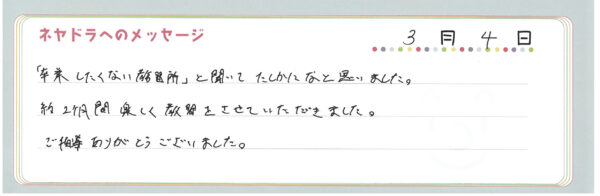 ネヤドラへのメッセージ
3月4日
「卒業したくない教習所」と聞いてたしかになと思いました。
約2ヶ月間楽しく教習をさせていただきました。
ご指導ありがとうございました。